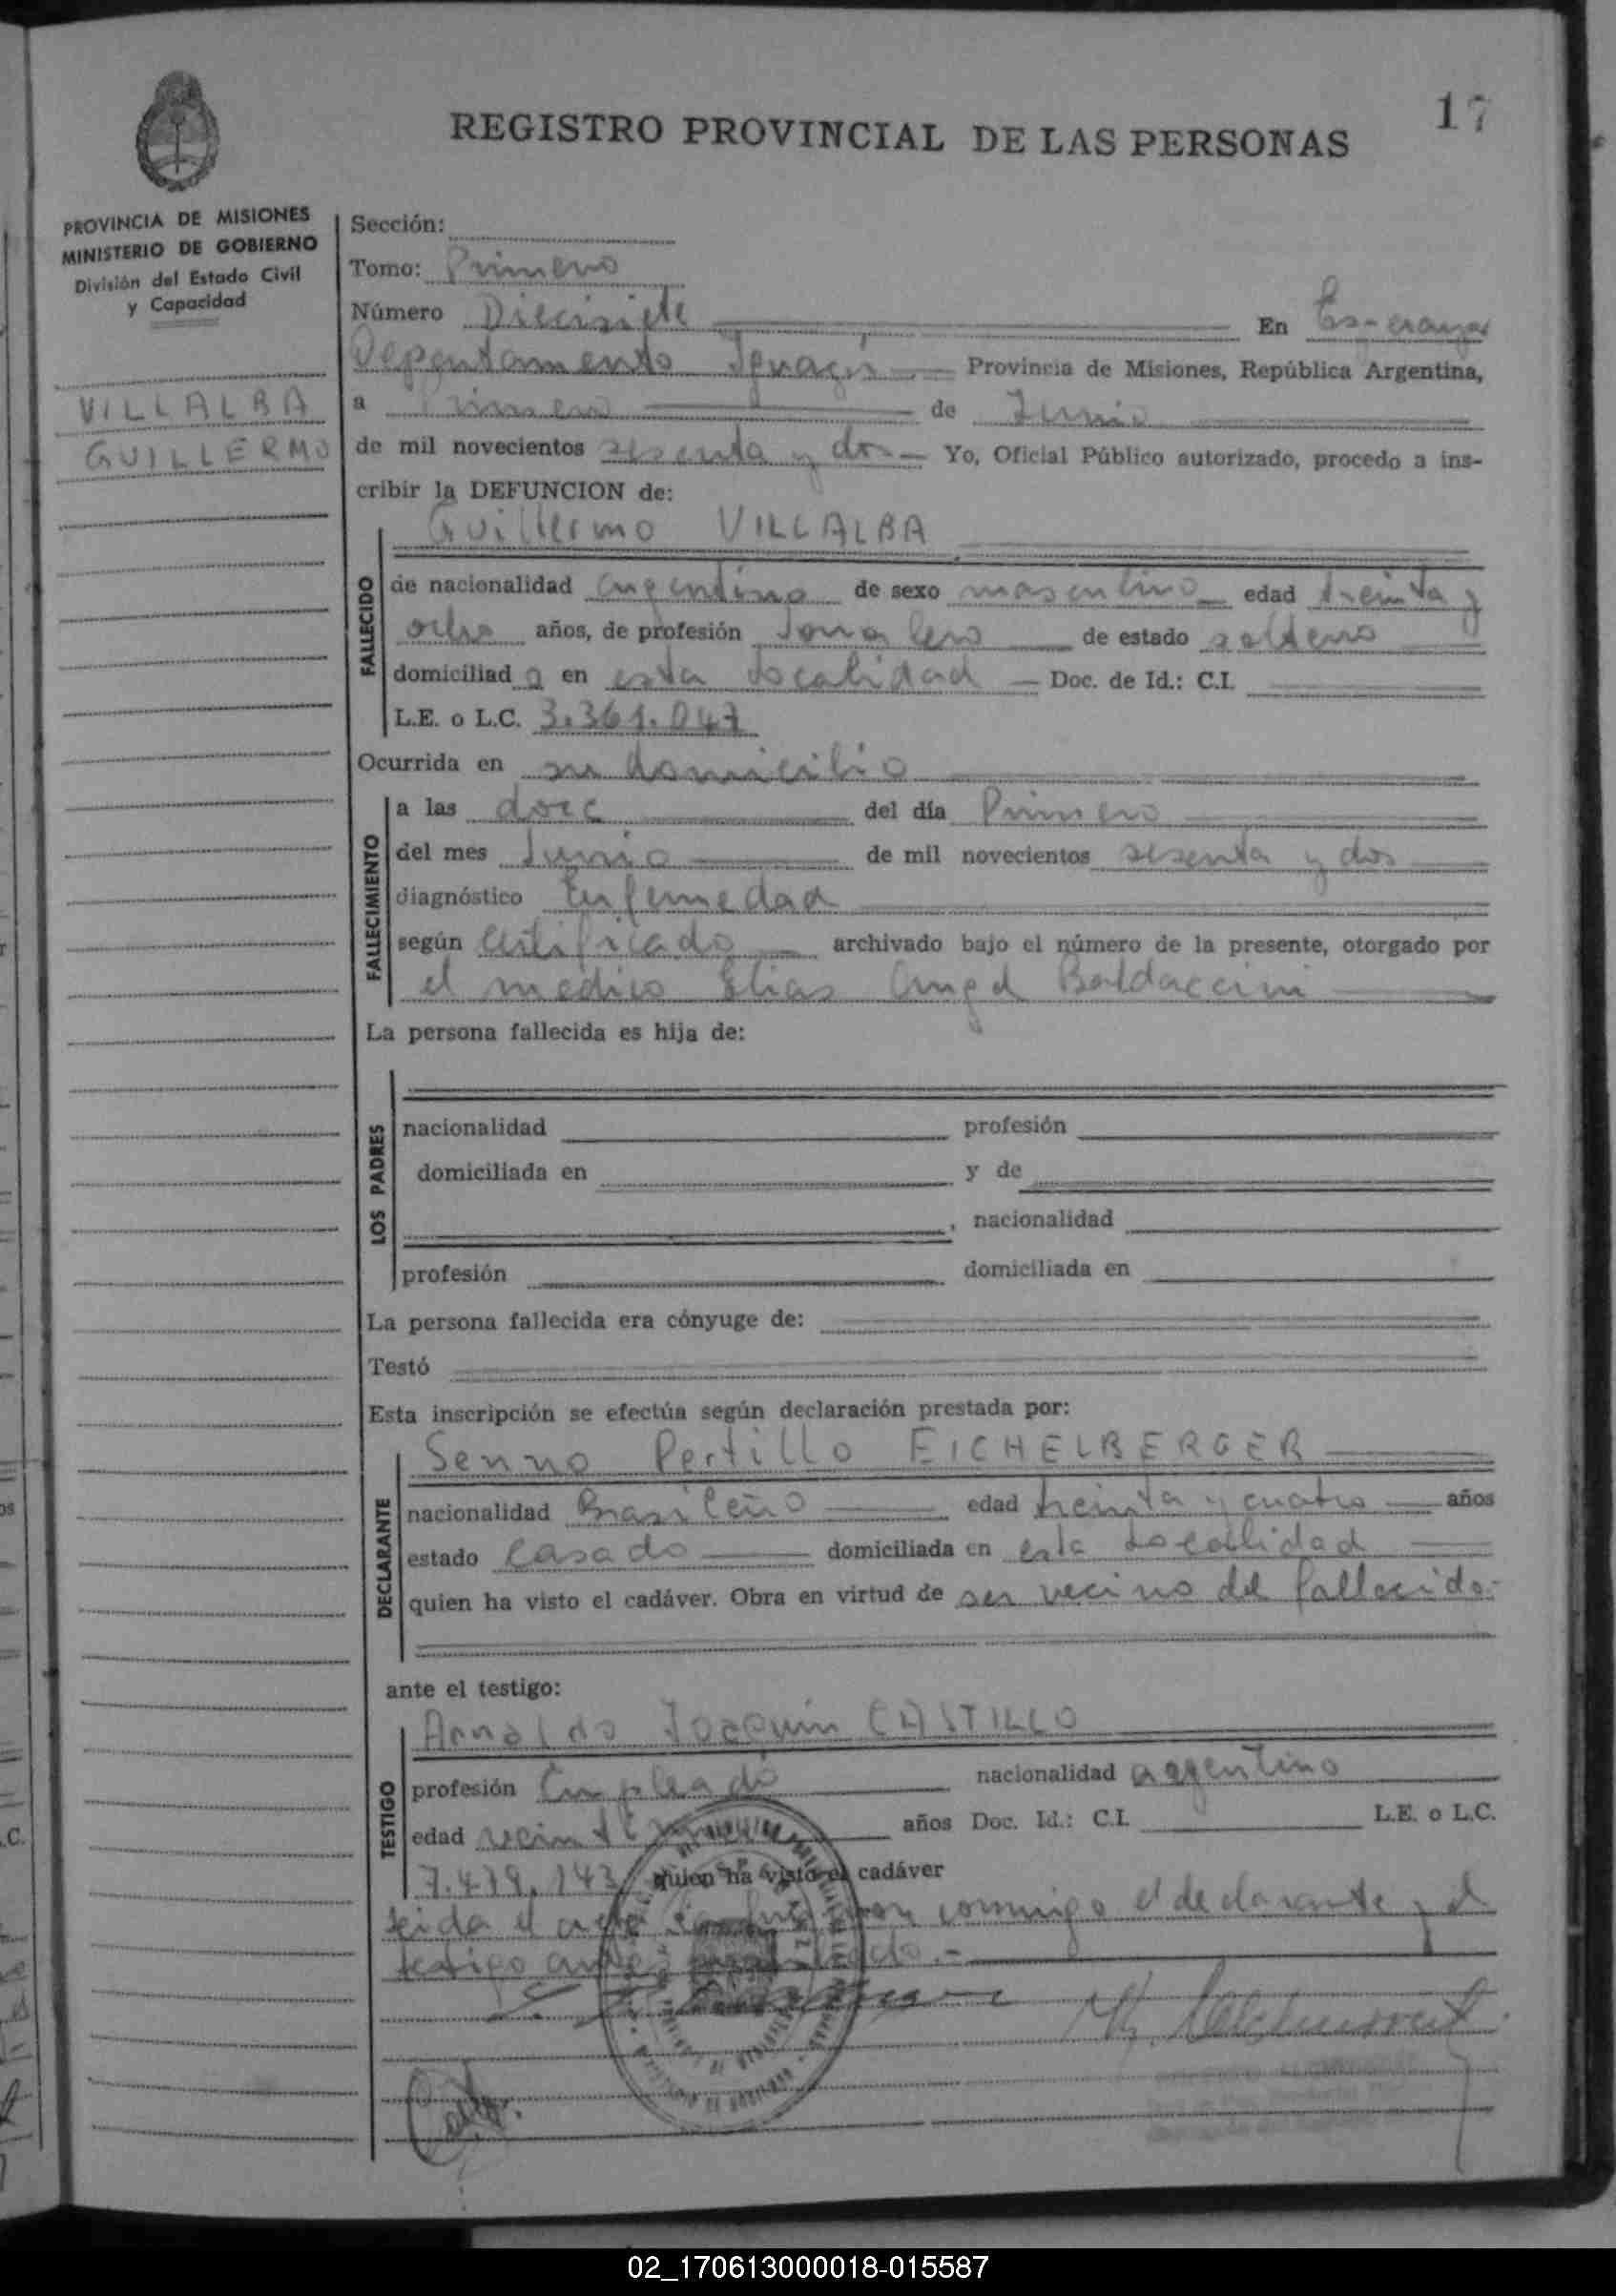 17
REGISTRO PROVINCIAL DE LAS PERSONAS
PROVINCIA DE MISIONES
MINISTERIO DE GOBIERNO
División del Estado Civil
y Capacidad
VILLALBA
GUILLERMO
Sección:
Tomo: Primero
Número Diecisiete En Esperanza
Departamento Iguazú Provincia de Misiones, República Argentina,
a Primero de Junio
de mil novecientos sesenta y dos Yo, Oficial Público autorizado, procedo a ins-
cribir la DEFUNCION de:
Guillermo VILLALBA
FALLECIDO
de nacionalidad argentino de sexo masculino edad treinta y
ocho años, de profesión Jornalero de estado soltero
domiciliad o en esta Localidad Doc. de Id.: C.I.
L.E. o L.C. 3.361.047
Ocurrida en su domicilio
FALLECIMIENTO
a las doce del día Primero
del mes Junio de mil novecientos sesenta y dos
diagnóstico Enfermedad
según Certificado archivado bajo el número de la presente, otorgado por
el medico Elias Angel Baldaccini
La persona fallecida es hija de:
LOS PADRES
nacionalidad profesión
domiciliada en y de
, nacionalidad
profesión domiciliada en
La persona fallecida era cónyuge de:
Testó
Esta inscripción se efectúa según declaración prestada por:
DECLARANTE
Senno Pertillo EICHELBERGER
nacionalidad Brasileño edad treinta y cuatro años
estado Casado domiciliada en esta Localidad
quien ha visto el cadáver. Obra en virtud de ser vecino del fallecido.-
ante el testigo:
TESTIGO
Arnaldo Joaquin CASTILLO
profesión Empleado nacionalidad argentino
edad años Doc. Id.: C.I. L.E. o L.C.
7.479.143 quien ha visto el cadáver
Leida el acta conmigo el declarante y el
testigo antes
02_170613000018-015587